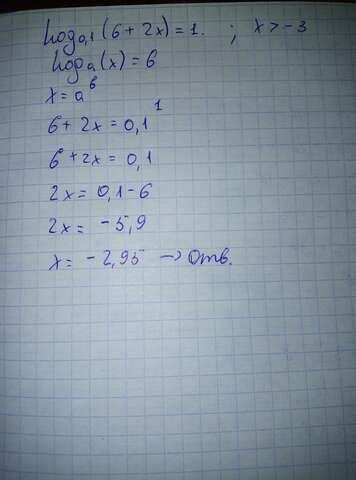 Log₀,₁(6+2x)=1. ; x>-3
Logₐ(x)=b
x=aᵇ
6+2x=0,1¹
6+2x=0,1
2x=0,1-6
2x=-5,9
x=-2,95 → Отв.